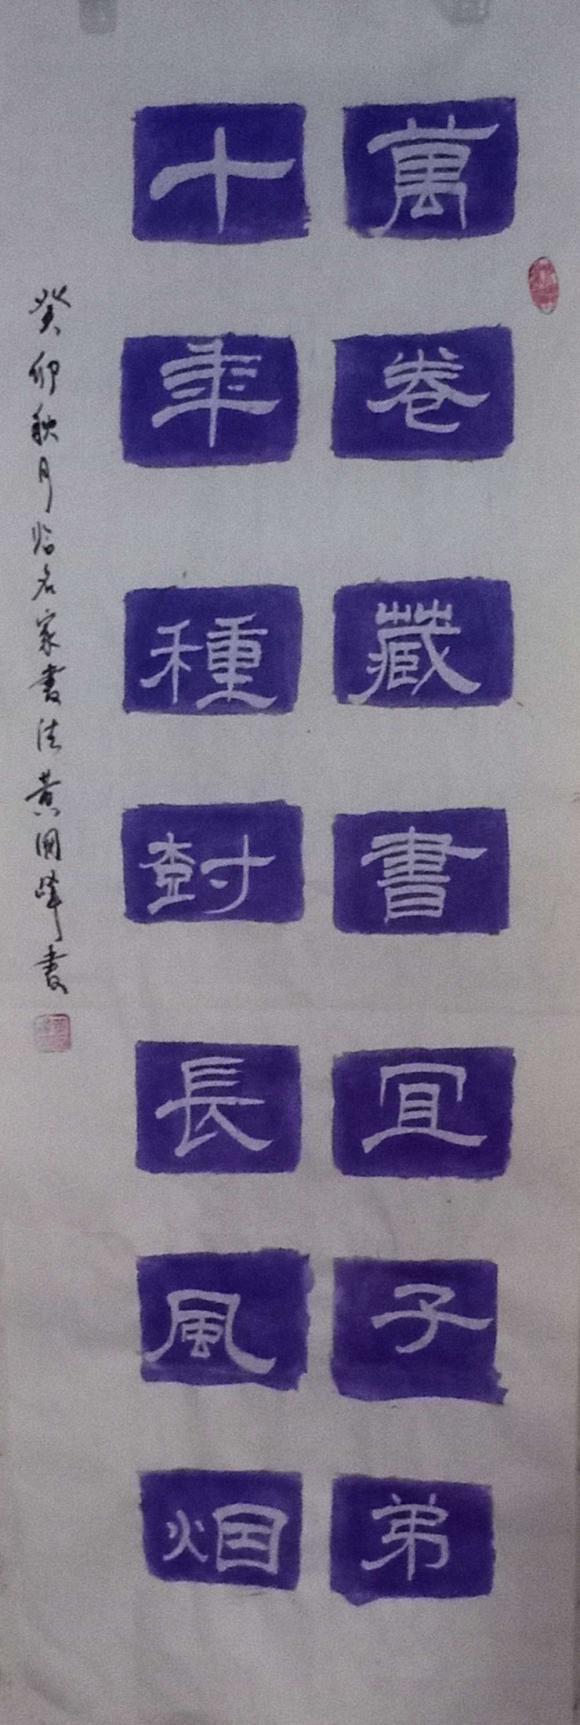 萬卷藏書宜子弟
十年種尌長風烟
癸卯秋月临名家書法黄國峰書